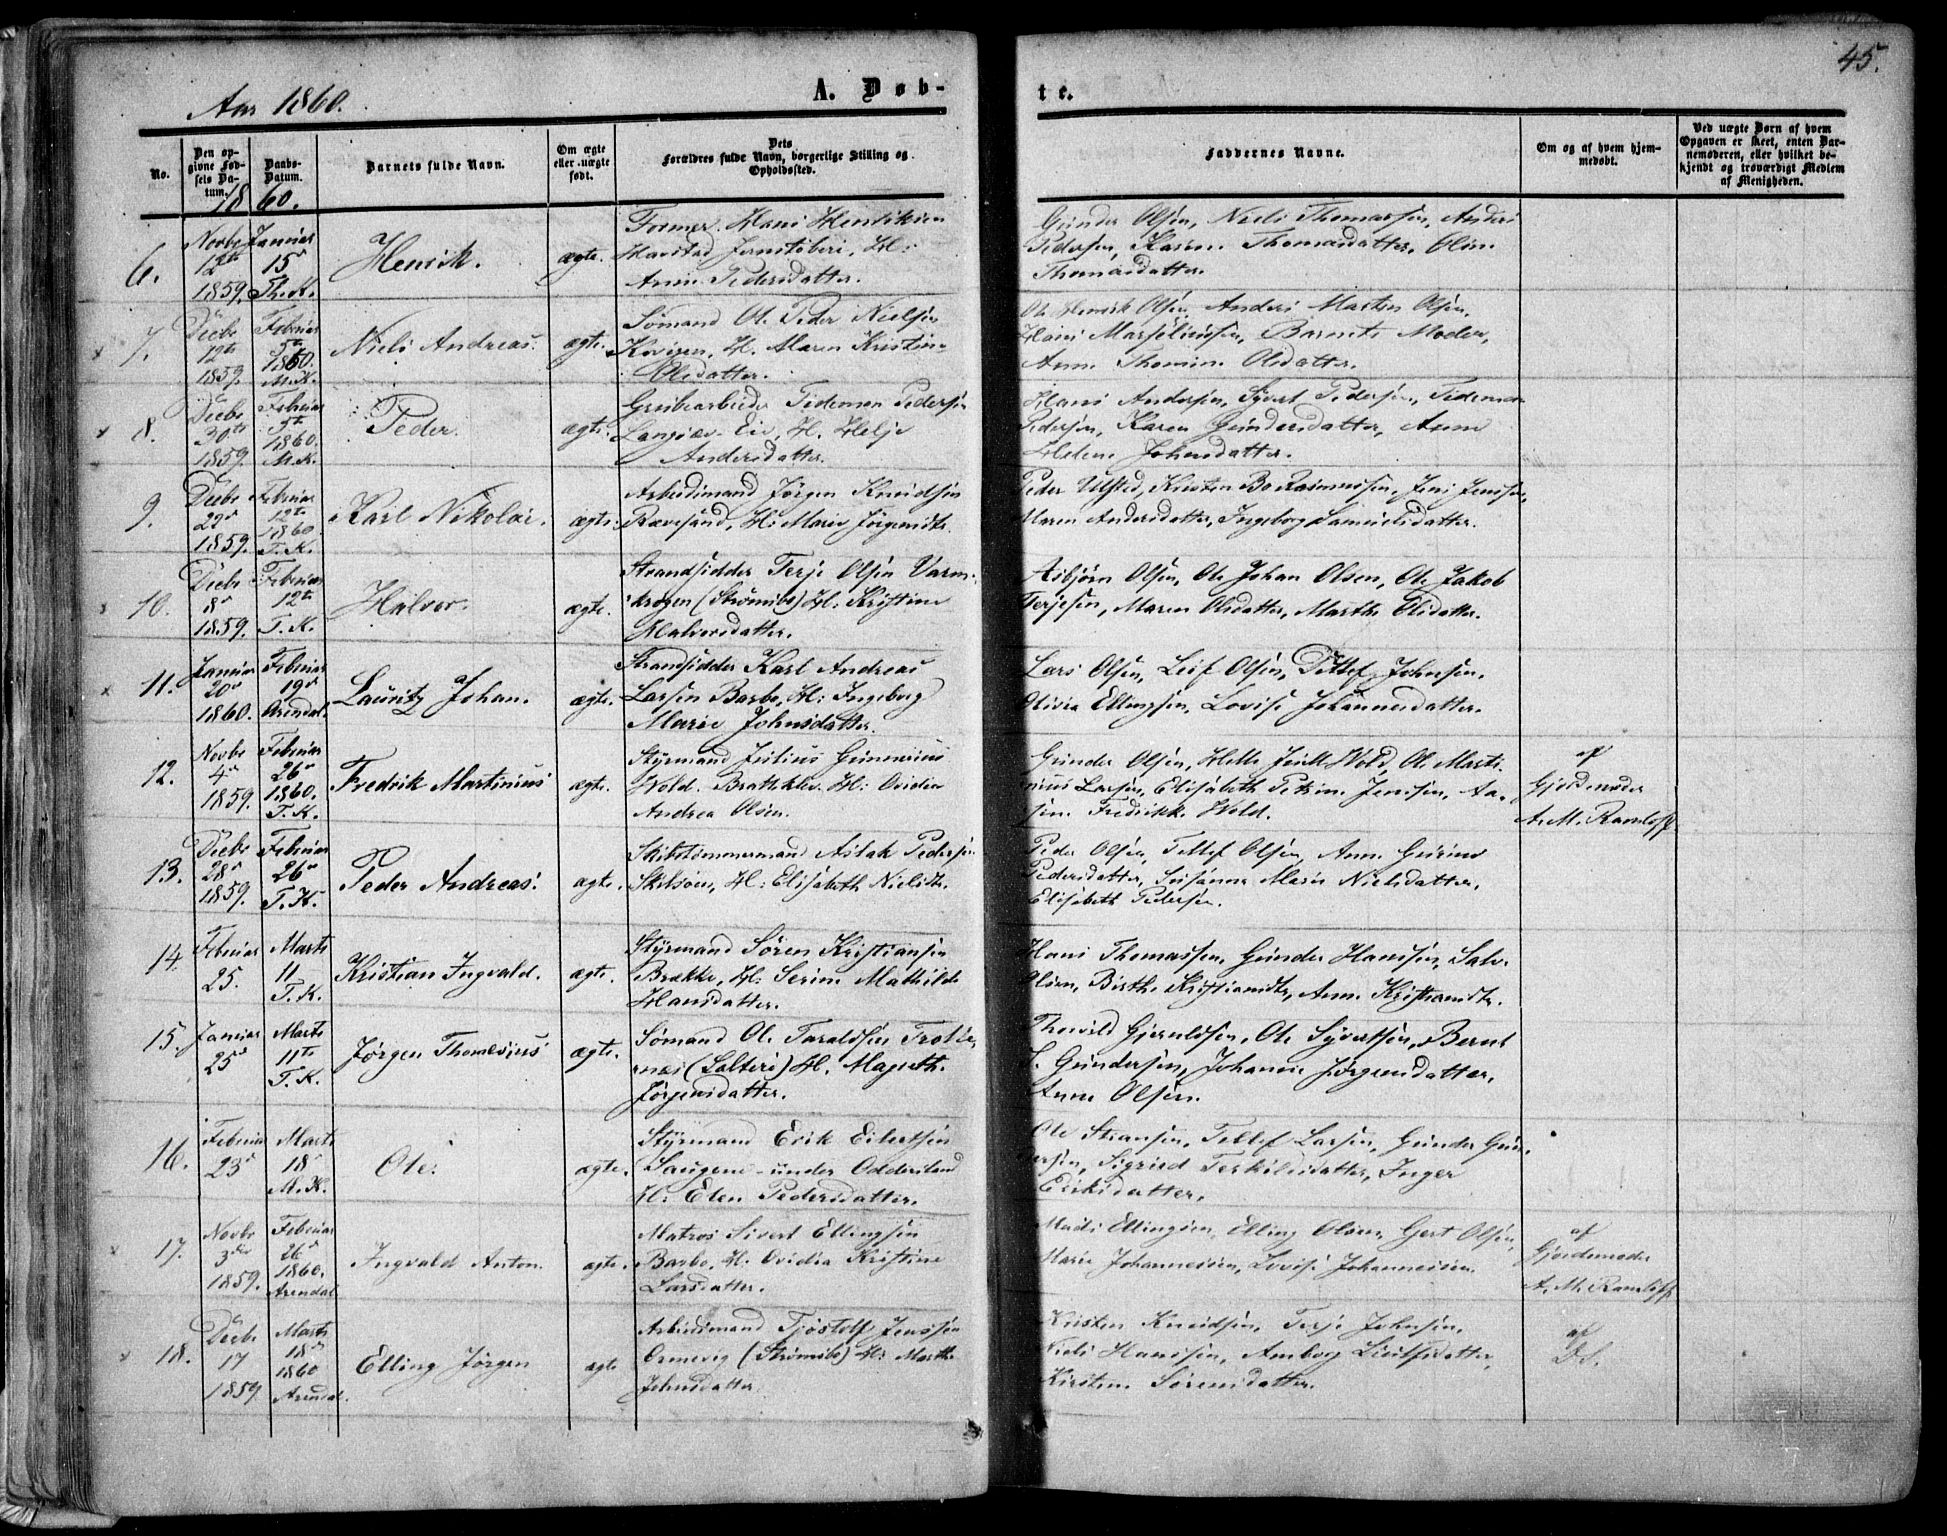 45.
Aar 1860.
A. Døb-
te.
No.
Den op-
givne Fød-
sels Da-
tum.
Daabs-
Datum.
Barnets fulde Navn.
Om ægte
eller uægte
født.
Dets
Forældres fulde Navn, borgerlige Stilling og
Opholdssted.
Faddernes Navne.
Om og af hvem hjem-
medøbt.
Ved uægte Børn af hvem
Opgaven er skeet, enten Bar-
nemoderen, eller hvilket be-
kjendt og troværdigt Medlem
af Menigheden.
1860.
6.
Novbr
12te
1859.
Januar
15
Th. K.
Henrik.
ægte.
Former Hans Henriksen
Harstad Jernstøberi, H:
Anne Pedersdatter.
Gunder Olsen, Niels Thomassen, Anders
Pedersen, Karen Thomasdatter, Oline
Thomasdatter.
7.
Decbr
12te
1859.
Februar
5te
1860.
M. K.
Niels Andreas.
ægte.
Sømand Ole Peder Nielsen
H. Maren Kristine
Olsdatter.
Ole Henrik Olsen, Anders Martin Olsen,
Hans Marselinsen, Barnets Moder,
Anne Thomine Olsdatter.
8.
Decbr
30te
1859.
Februar
5te
1860.
M. K.
Peder.
ægte.
Grubearbeider Tideman Pedersen
Langsæ-Eie, H. Helje
Andersdatter.
Hans Andersen, Syvert Pedersen, Tideman
Pedersen, Karen Gundersdatter, Anne
Helene Johnsdatter.
9.
Decbr
29
1859.
Februar
12te
1860.
T. K.
Karl Nikolai.
ægte.
Arbeidsmand Jørgen Knudsen
Rævesand, H: Marie Jørgensdtr.
Peder Ulsted, Kristen Bo Rasmussen, Jens Jensen,
Maren Andersdatter, Ingeborg Samuelsdatter.
10.
Decbr
8
1859.
Februar
12te
T. K.
Halvor.
ægte.
Strandsidder Terje Olsen Varm-
krogen (Strømsbo) H: Kristine
Halvorsdatter.
Asbjørn Olsen, Ole Johan Olsen, Ole Jakob
Terjesen, Maren Olsdatter, Marthe Olsdatter.
11.
Januar
20
1860.
Februar
19
Arendal.
Lauritz Johan.
ægte.
Strandsidder Karl Andreas
Larsen Barbo, H: Ingeborg
Marie Johnsdatter.
Lars Olsen, Leif Olsen, Tellef Johnsen,
Olivia Ellingsen, Lovise Johannesdatter.
12.
Novbr
4
1859.
Februar
26
1860.
T. K.
Fredrik Martinius
ægte.
Styrmand Julius Gunnerius
Wold. Bratteklev. H: Ovidia
Andrea Olsen.
Gunder Olsen, Helle Juell Wold, Ole Marti-
nius Larsen, Elisabeth Petrine Jensen, Aa-
Fredrikke Wold.
af
Gjordemoder
A. M. Ramloff
13.
Decbr
28
1859.
Februar
26
T. K.
Peder Andreas.
ægte.
Skibstømmermand Aslak Pedersen
Skilsøen, H: Elisabeth Nielsdtr.
Peder Olsen, Tellef Olsen, Anne Gurine
Pedersdatter, Susanne Marie Nielsdatter,
Elisabeth Pedersen.
14.
Februar
25.
Marts
11
T. K.
Kristian Ingvald.
ægte.
Styrmand Søren Kristiansen
Brække, H: Serine Mathilde
Hansdatter.
Hans Thomassen, Gunder Hansen, Salve
Olsen, Birthe Kristiansdtr, Anne Kristiansdtr.
15.
Januar
25
Marts
11te
T. K.
Jørgen Thomesius
ægte.
Sømand Ole Taraldsen
(Salteri) H. Magrethe
Jørgensdatter.
Thorvild Gjeruldsen, Ole Syvertsen, Bernt
T. Gundersen, Johanne Jørgensdatter,
Anne Olsen.
16.
Februar
23
Marts
18
M. K.
Ole.
ægte.
Styrmand Erik Eilertsen
Laugene under Oddersland
H: Elen Pedersdatter.
Ole Stiansen, Tellef Larsen, Gunder Gun-
dersen, Sigried Terkilsdatter, Inger
Eriksdatter,
17.
Novbr
3
1859.
Februar
26
1860.
Arendal
Ingvald Anton.
ægte.
Matros Sivert Ellingsen
Barbo, H: Ovidia Kristine
Larsdatter.
Mads Ellingsen, Elling Olsen, Gert Olsen,
Marie Johannessen, Lovise Johannessen.
af
Gjordemoder
A. M. Ramloff
18.
Decbr
17
1859
Marts
18
1860
Arendal.
Elling Jørgen
ægte
Arbeidsmand Tjøstolf Jenssen
Ormevig (Strømsbo) H: Marthe
Johnsdatter
Kristen Knudsen, Terje Johnsen,
Niels Hansen, Amborg Leulfsdatter,
Kirsten Sørensdatter.
af
Ds.